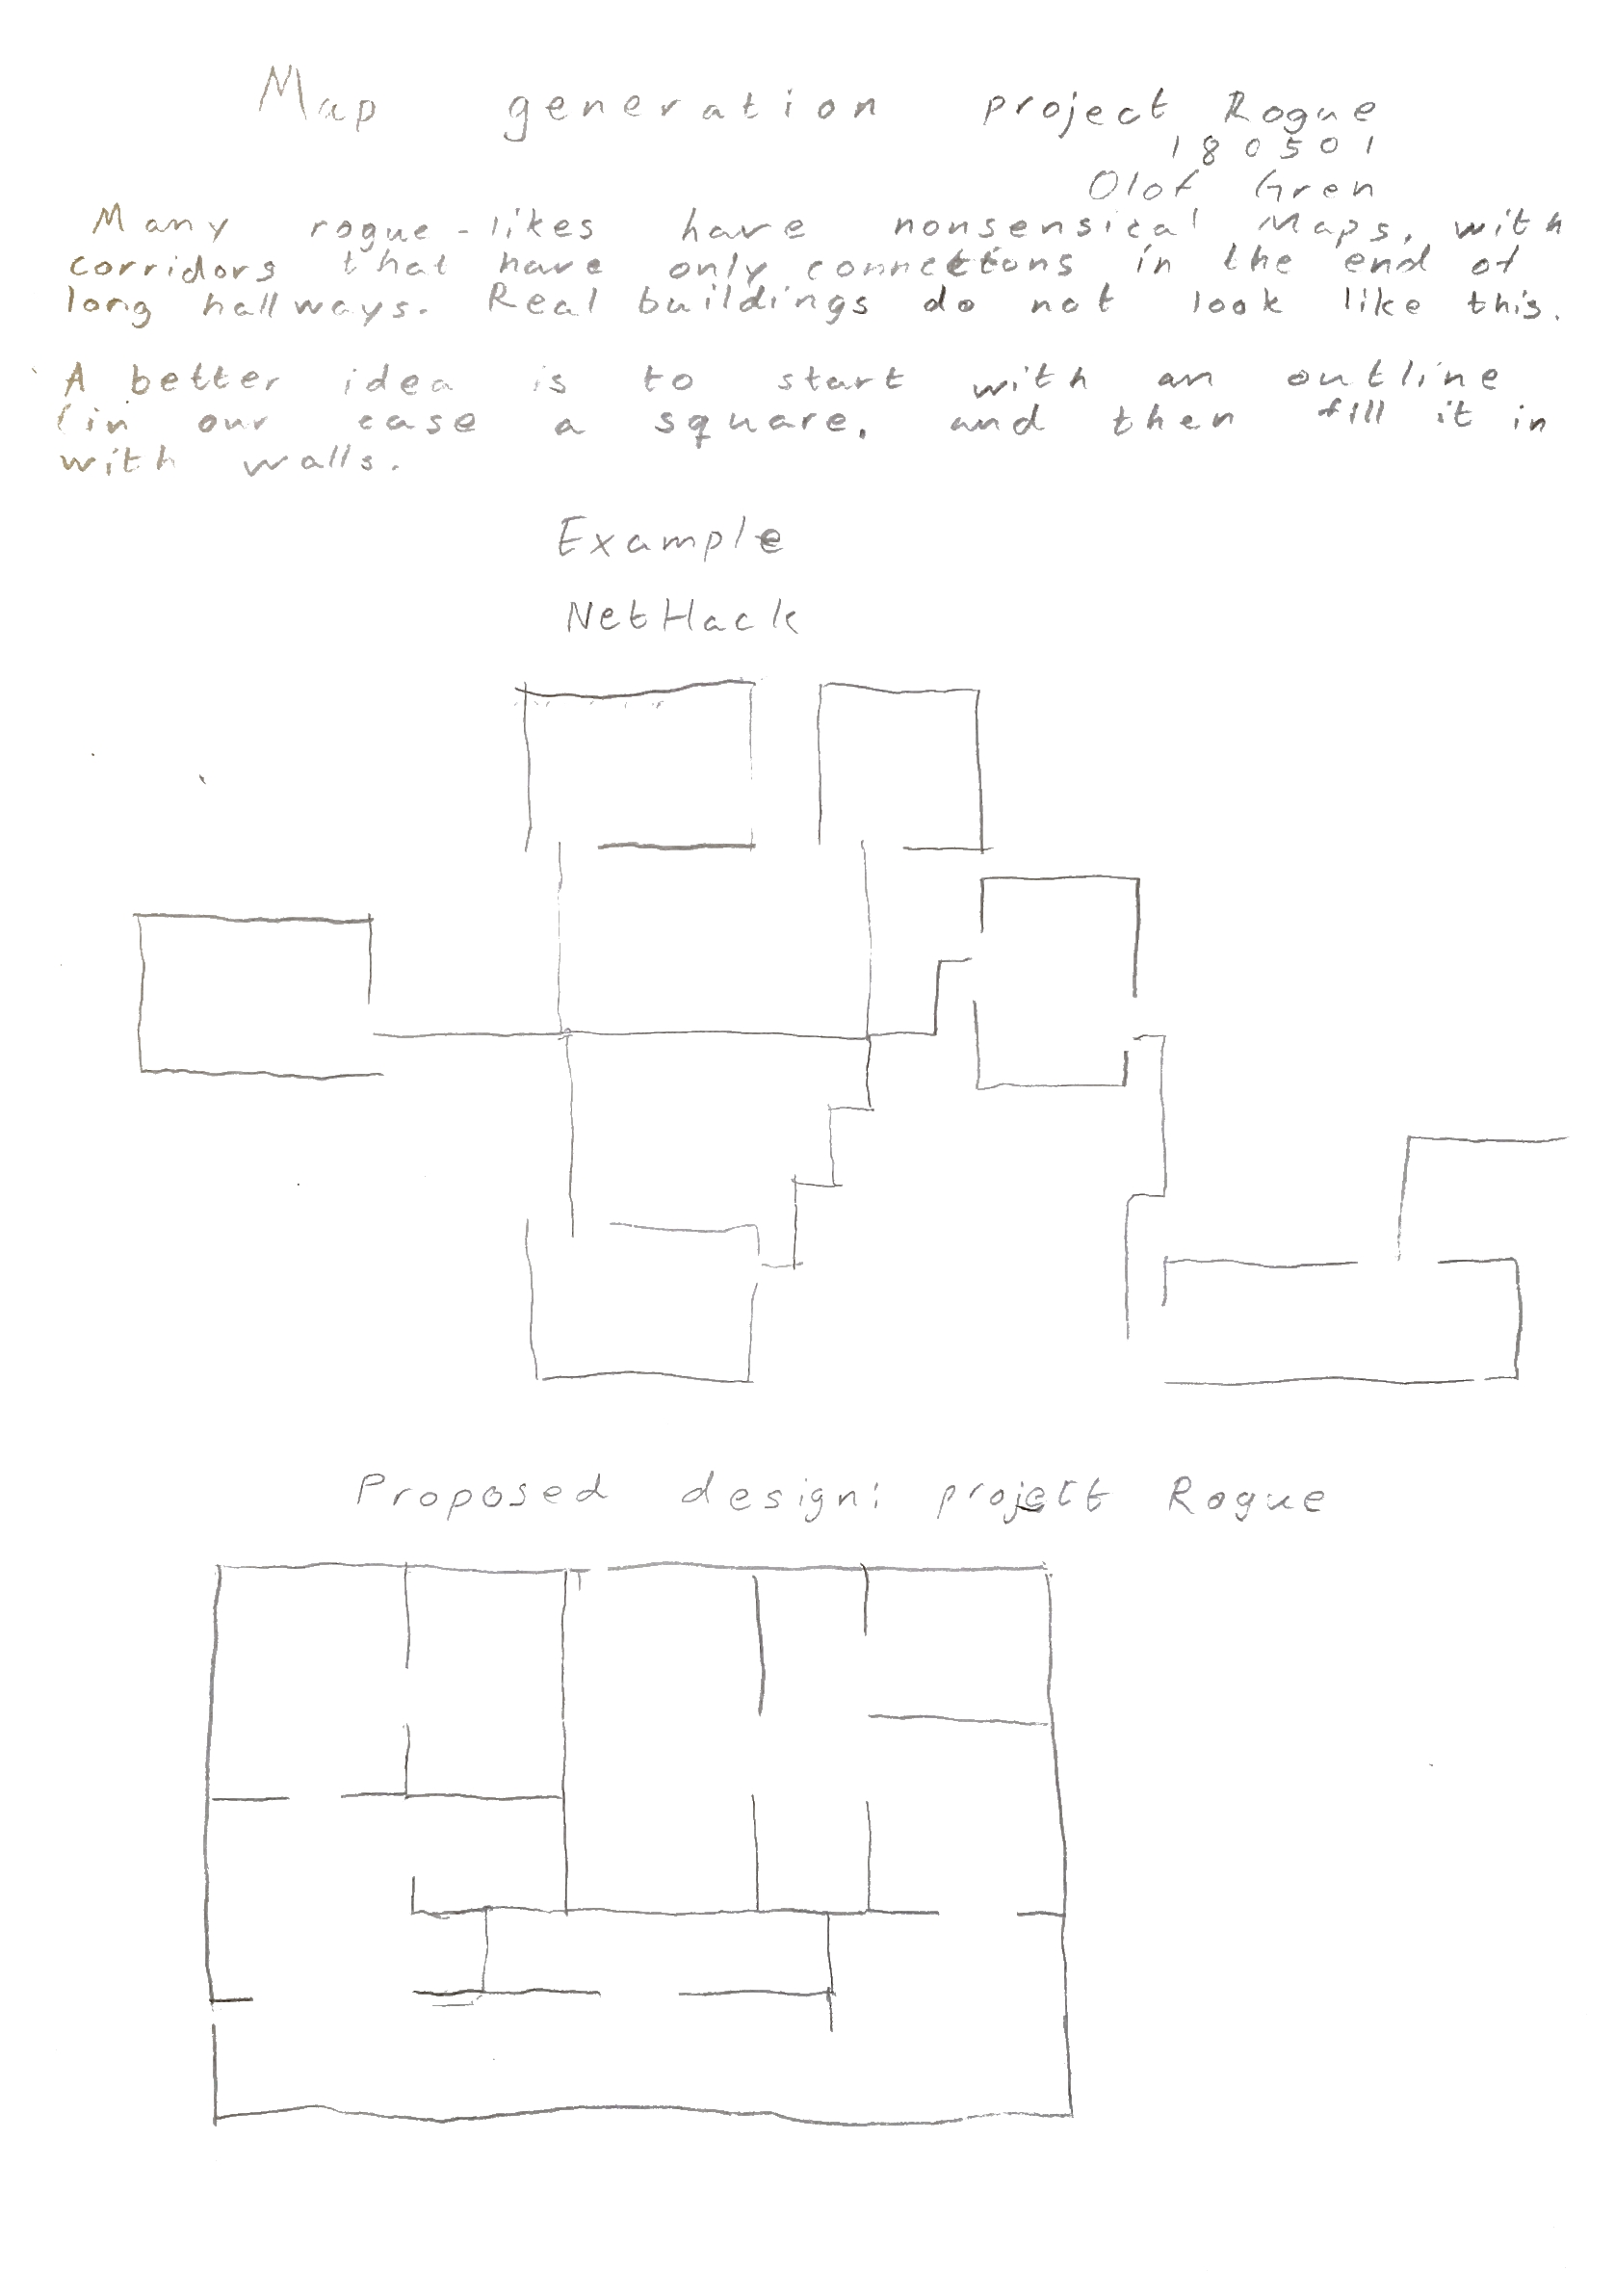 Map generation project Rogue
180501
Olof Gren
Many rogue-likes have nonsensical Maps, with
corridors that have only connections in the end of
long hallways. Real buildings do not look like this.
A better idea is to start with an outline
(in our case a square, and then fill it in
with walls.
Example
NetHack
Proposed design: project Rogue